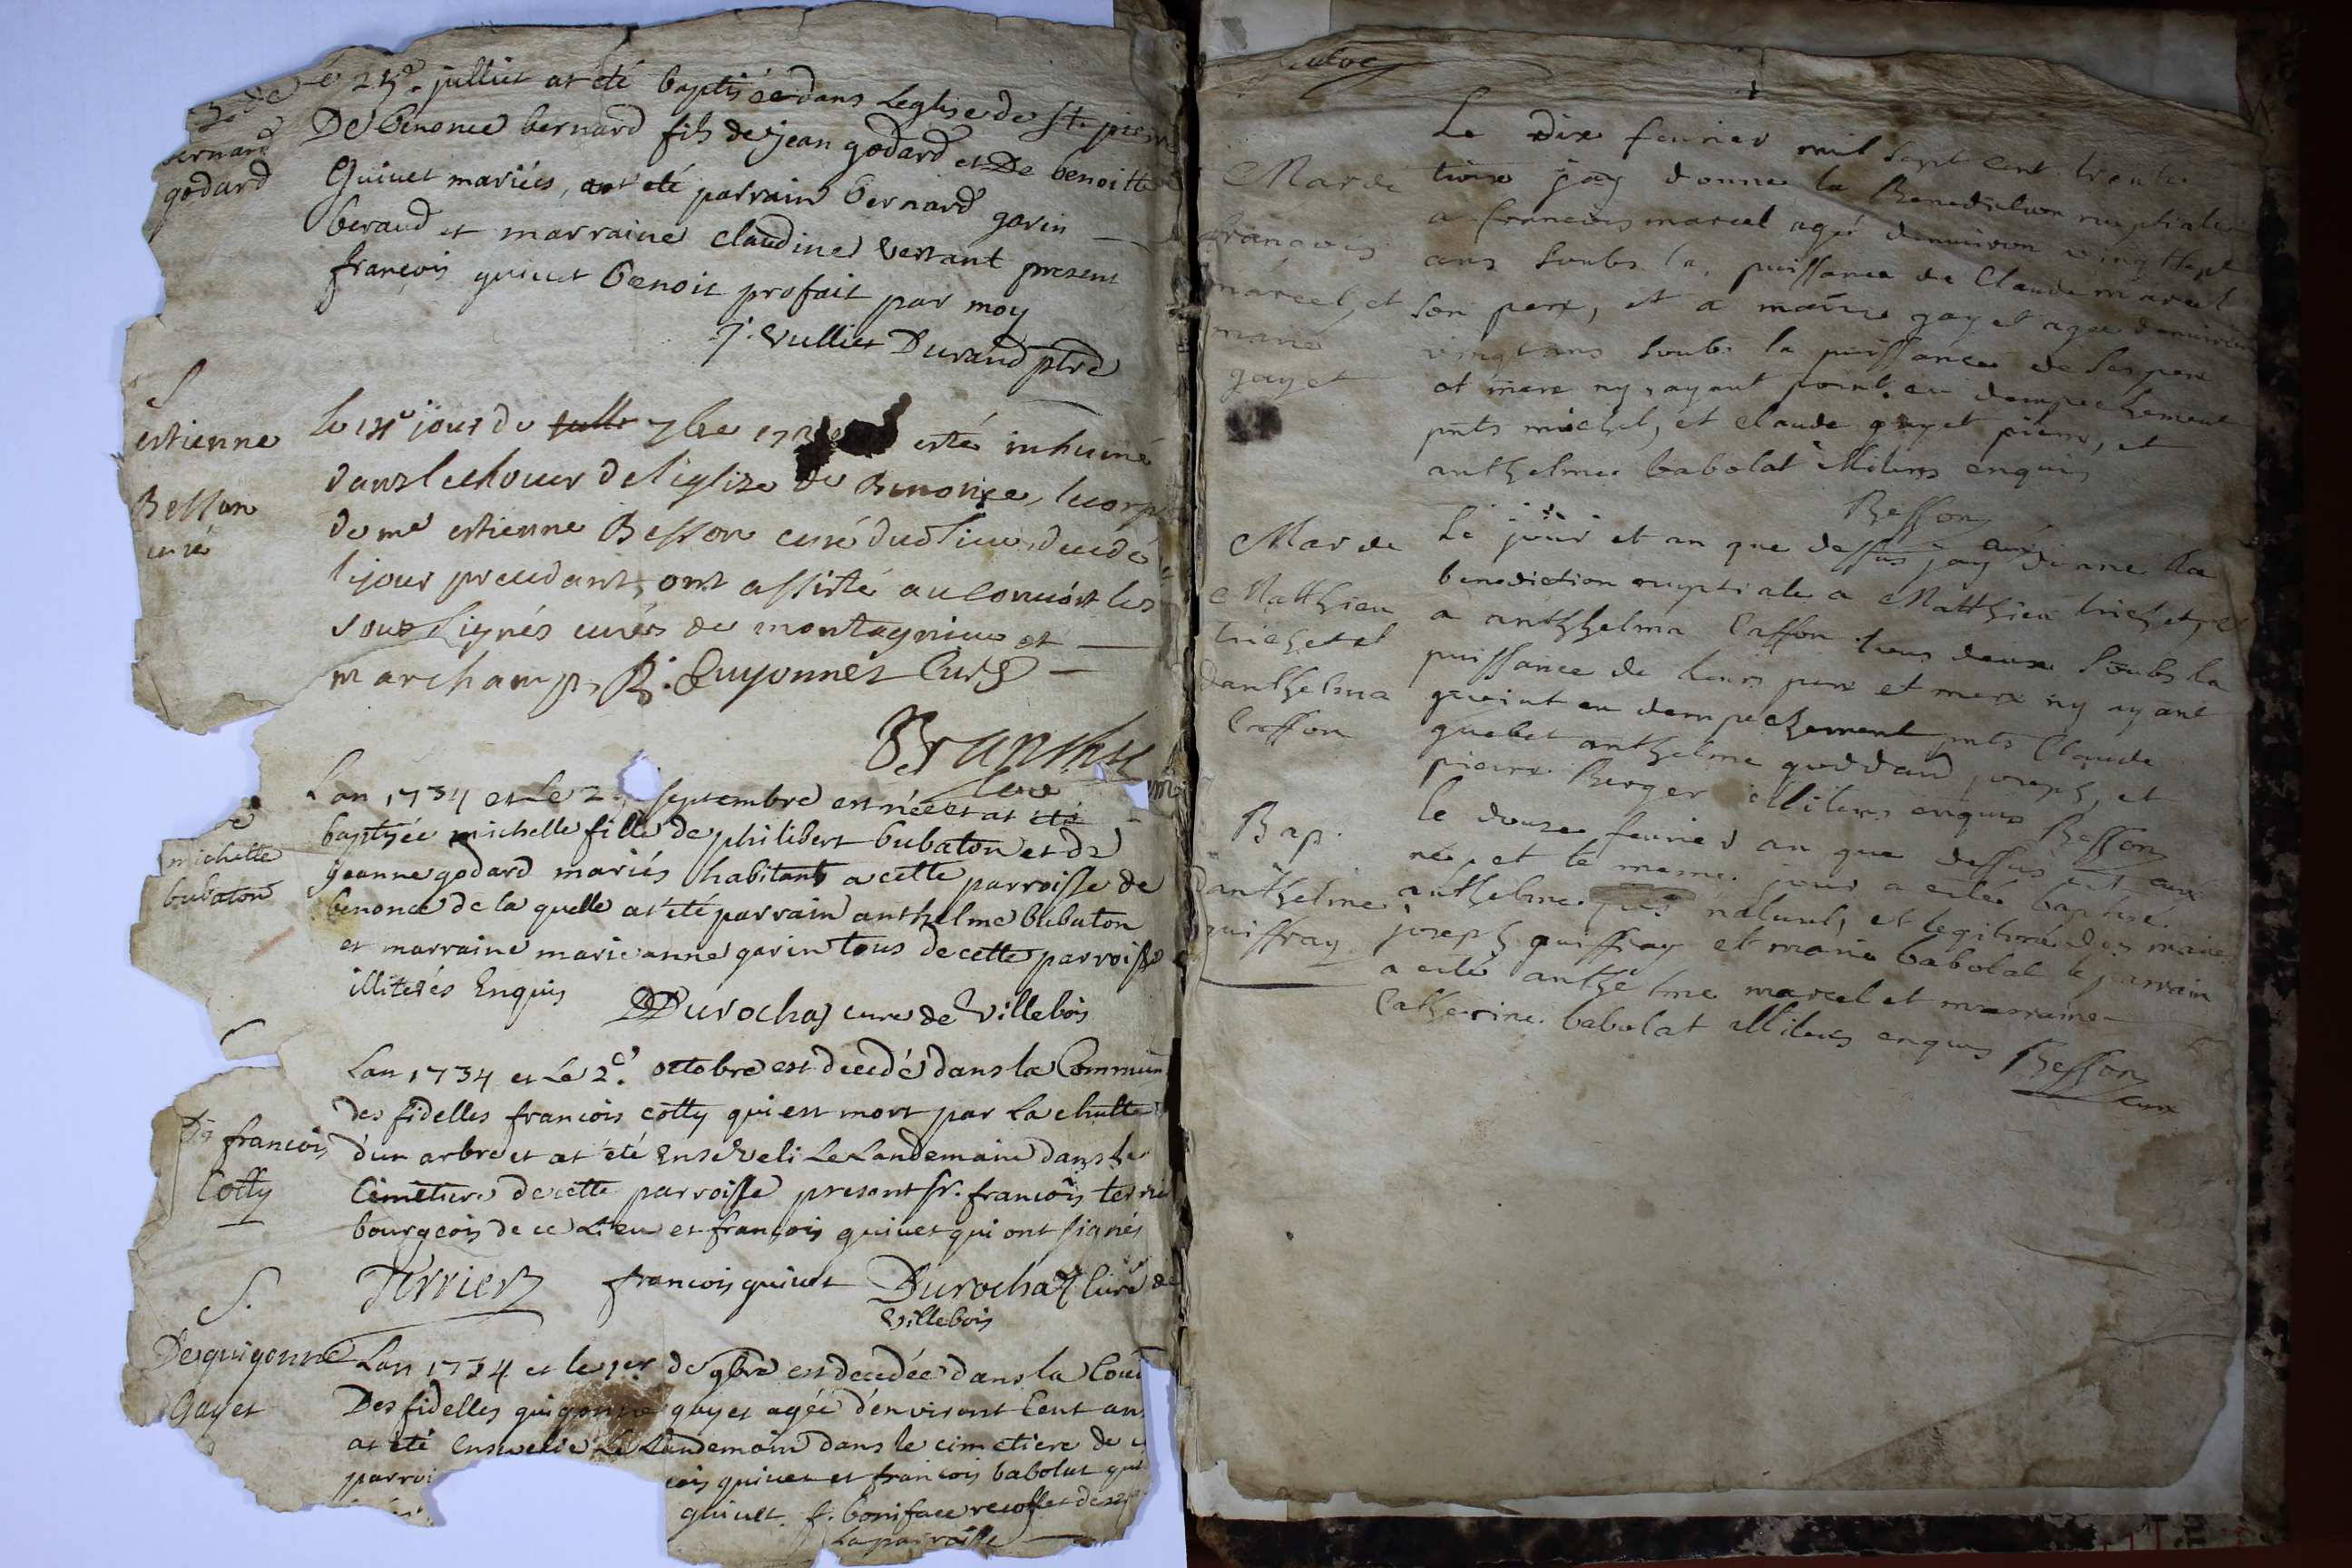 bernard
godard
25e. julliet at été baptisée dans Leglise de St. pierre
De benonce bernard fils de jean godard et De benoitte
Guivet mariées, ont eté parrain bernard garin
beraud et marraine claudine versant present
françois guivet benoit profait par moy
J. Vullier Durand ptre
S
estienne
Besson
curé
le jour du 7bre esté inhumé
dans le choeur de leglize de Benonce, le corps
de me estienne Besson curé dud lieu, decedé
le jour precedant, ont assisté au convoit les
sousignés curés de montagnieu et
marchamp, Guyonnet Curé
michelle
bubaton
Lan 1734 et Le 2 septembre est née et at été
baptisée michelle fille de philibert bubaton et de
Jeanne godard mariés habitants a cette parroisse de
benonce de la quelle at été parrain anthelme bubaton
et marraine marie anne garin tous de cette parroisse
illiterés Enquis
Durochaj curé de Villebois
De francois
Cotty
Lan 1734 et Le 2e. octobre est decedé dans la Commun
des fidelles francois cotty qui est mort par La chutte
d'un arbre et at été Enseveli Le Landemain dans le
Cimetiere de cette parroisse present sr. francois terrie
bourgeois de ce Lieu et françois guivet qui ont signés
S.
Terrier francois guivet Durochaj Curé de
Villebois
De guigonne
Gayet
Lan 1734 et le 1er de 9bre est decedée dans la Cou
Des fidelles guigonne gayet agée d'environt Cent an
at été Ensevelie Le Landemain dans le cimetiere de
parroi cois guivet et francois babolat qui
guivet. f. boniface recollet
La parroisse
Mar de
françois
marcel, et
marie
gayet
Le dix fevrier mil sept cent trente
trois jay donne la Benediction nuptiale
a francois marcel agé denviron vingt sept
ans soubs la puissance de Claude marcel
son pere, et a marie gayet agée denviron
vingt ans soubs la puissance de ses pere
et mere ny ayant point eu dempechement
pnts michel, et claude gayet pierre, et
anthelme babolat illiters enquis
Besson
curé
Mar de
Matthieu
trichet et
danthelma
Casson
Le jour et an que dessus jay donne la
benediction nuptiale a Matthieu trichet, et
a anthelma Casson tous deux soubs la
puissance de leurs pere et mere ny ayant
point eu dempechement pnts Claude
anthelme goddard joseph, et
pierre Berger illiters enquis
Besson
curé
Bap.
danthelme
guiffray
le douze fevrier an que dessus est
né, et le mesme jour a esté baptisé
anthelme naturel, et legitime de
joseph guiffray et marie babolat le parrain
a esté anthelme marcel et marraine
Catherine babolat illiters enquis
Besson
curé